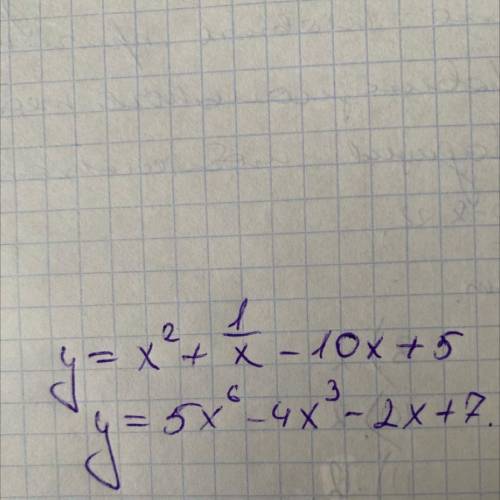 y = x² + 1/x - 10x + 5
y = 5x⁶ - 4x³ - 2x + 7.